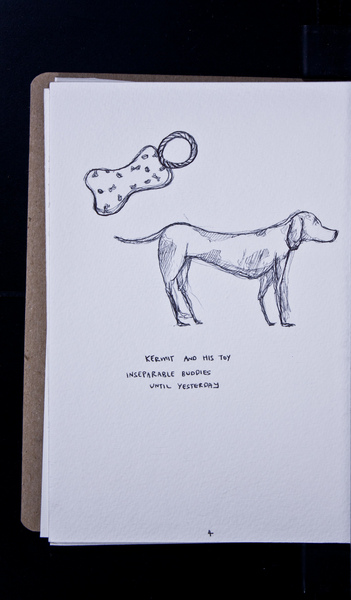 KERMIT AND HIS TOY
INSEPARABLE BUDDIES
UNTIL YESTERDAY
4